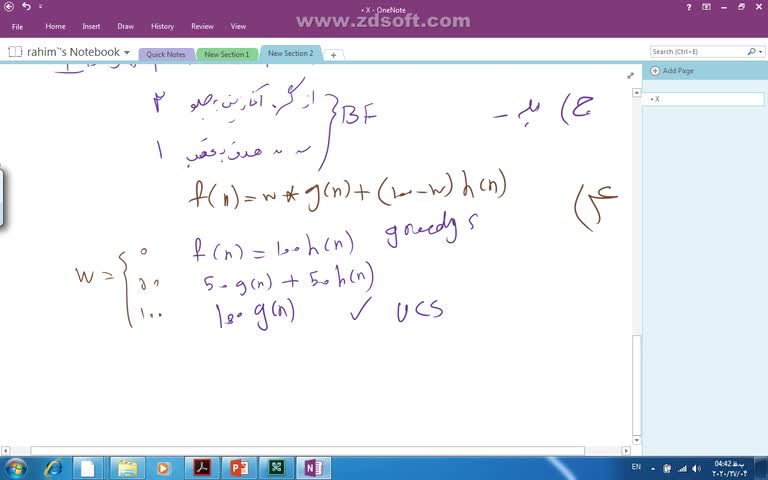 • X - OneNote
www.zdsoft.com
File Home Insert Draw History Review View
rahim`'s Notebook Quick Notes New Section 1 New Section 2
Search (Ctrl+E)
Add Page
• X
ج)
از گره آغازین به جلو ۲
هدف به عقب ۱
BF
f(n) = w * g(n) + (100 - w) h(n)
f(n) = 100 h(n) greedy s
50 g(n) + 50 h(n)
100 g(n) ✓ UCS
w = { 0
50
100
EN 04:42 ب.ظ
۲۰۲۰/۲۷/۰۴